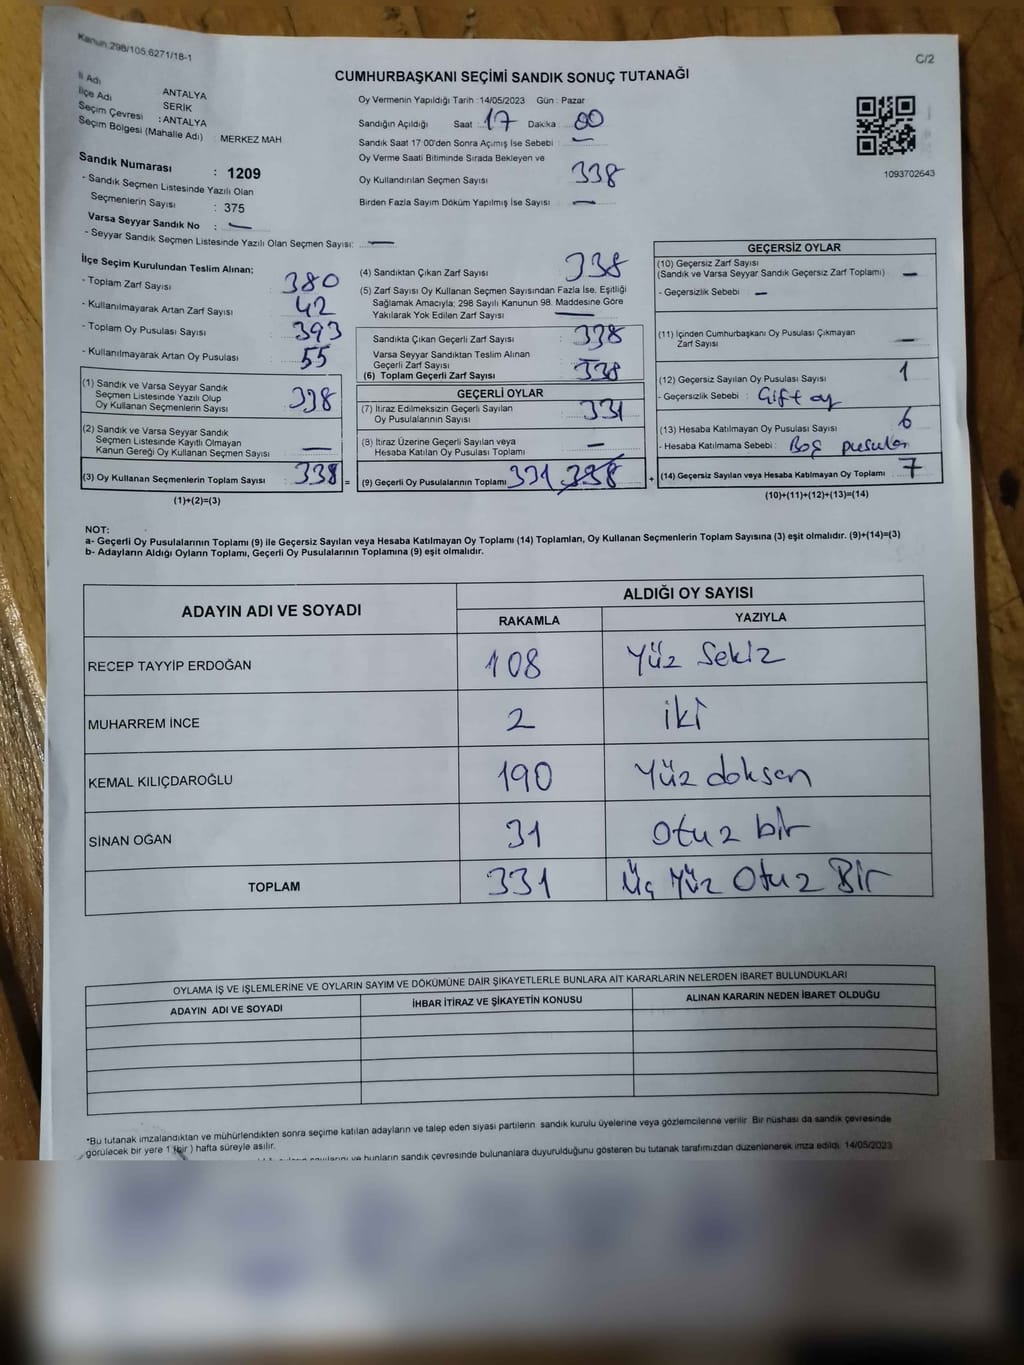 Kanun:298/105.6271/18-1
C/2
CUMHURBAŞKANI SEÇİMİ SANDIK SONUÇ TUTANAĞI
İl Adı ANTALYA
İlçe Adı SERİK
Seçim Çevresi : ANTALYA
Seçim Bölgesi (Mahalle Adı) : MERKEZ MAH
Sandık Numarası : 1209
- Sandık Seçmen Listesinde Yazılı Olan
Seçmenlerin Sayısı : 375
Varsa Seyyar Sandık No : —
- Seyyar Sandık Seçmen Listesinde Yazılı Olan Seçmen Sayısı: —
Oy Vermenin Yapıldığı Tarih :14/05/2023 Gün : Pazar
Sandığın Açıldığı Saat : 17 Dakika 00
Sandık Saat 17:00'den Sonra Açılmış İse Sebebi : —
Oy Verme Saati Bitiminde Sırada Bekleyen ve
Oy Kullandırılan Seçmen Sayısı 338
Birden Fazla Sayım Döküm Yapılmış İse Sayısı —
1093702643
İlçe Seçim Kurulundan Teslim Alınan;
- Toplam Zarf Sayısı : 380
- Kullanılmayarak Artan Zarf Sayısı : 42
- Toplam Oy Pusulası Sayısı : 393
- Kullanılmayarak Artan Oy Pusulası : 55
(1) Sandık ve Varsa Seyyar Sandık
Seçmen Listesinde Yazılı Olup
Oy Kullanan Seçmenlerin Sayısı : 338
(2) Sandık ve Varsa Seyyar Sandık
Seçmen Listesinde Kayıtlı Olmayan
Kanun Gereği Oy Kullanan Seçmen Sayısı : —
(3) Oy Kullanan Seçmenlerin Toplam Sayısı : 338 =
(1)+(2)=(3)
(4) Sandıktan Çıkan Zarf Sayısı 338
(5) Zarf Sayısı Oy Kullanan Seçmen Sayısından Fazla İse, Eşitliği
Sağlamak Amacıyla; 298 Sayılı Kanunun 98. Maddesine Göre
Yakılarak Yok Edilen Zarf Sayısı —
Sandıkta Çıkan Geçerli Zarf Sayısı 338
Varsa Seyyar Sandıktan Teslim Alınan
Geçerli Zarf Sayısı
(6) Toplam Geçerli Zarf Sayısı 338
GEÇERLİ OYLAR
(7) İtiraz Edilmeksizin Geçerli Sayılan
Oy Pusulalarının Sayısı 331
(8) İtiraz Üzerine Geçerli Sayılan veya
Hesaba Katılan Oy Pusulası Toplamı : —
(9) Geçerli Oy Pusulalarının Toplamı 331 338 +
GEÇERSİZ OYLAR
(10) Geçersiz Zarf Sayısı
(Sandık ve Varsa Seyyar Sandık Geçersiz Zarf Toplamı) —
- Geçersizlik Sebebi : —
(11) İçinden Cumhurbaşkanı Oy Pusulası Çıkmayan
Zarf Sayısı —
(12) Geçersiz Sayılan Oy Pusulası Sayısı 1
- Geçersizlik Sebebi : Çift oy
(13) Hesaba Katılmayan Oy Pusulası Sayısı 6
- Hesaba Katılmama Sebebi : Boş pusulalar
(14) Geçersiz Sayılan veya Hesaba Katılmayan Oy Toplamı 7
(10)+(11)+(12)+(13)=(14)
NOT:
a- Geçerli Oy Pusulalarının Toplamı (9) ile Geçersiz Sayılan veya Hesaba Katılmayan Oy Toplamı (14) Toplamları, Oy Kullanan Seçmenlerin Toplam Sayısına (3) eşit olmalıdır. (9)+(14)=(3)
b- Adayların Aldığı Oyların Toplamı, Geçerli Oy Pusulalarının Toplamına (9) eşit olmalıdır.
ADAYIN ADI VE SOYADI ALDIĞI OY SAYISI
RAKAMLA YAZIYLA
RECEP TAYYİP ERDOĞAN 108 Yüz Sekiz
MUHARREM İNCE 2 iki
KEMAL KILIÇDAROĞLU 190 Yüz doksan
SİNAN OĞAN 31 Otuz bir
TOPLAM 331 Üç Yüz Otuz Bir
OYLAMA İŞ VE İŞLEMLERİNE VE OYLARIN SAYIM VE DÖKÜMÜNE DAİR ŞİKAYETLERLE BUNLARA AİT KARARLARIN NELERDEN İBARET BULUNDUKLARI
ADAYIN ADI VE SOYADI İHBAR İTİRAZ VE ŞİKAYETİN KONUSU ALINAN KARARIN NEDEN İBARET OLDUĞU
*Bu tutanak imzalandıktan ve mühürlendikten sonra seçime katılan adayların ve talep eden siyasi partilerin sandık kurulu üyelerine veya gözlemcilerine verilir. Bir nüshası da sandık çevresinde
görülecek bir yere 1 (bir) hafta süreyle asılır.
ve bunların sandık çevresinde bulunanlara duyurulduğunu gösteren bu tutanak tarafımızdan düzenlenerek imza edildi. 14/05/2023